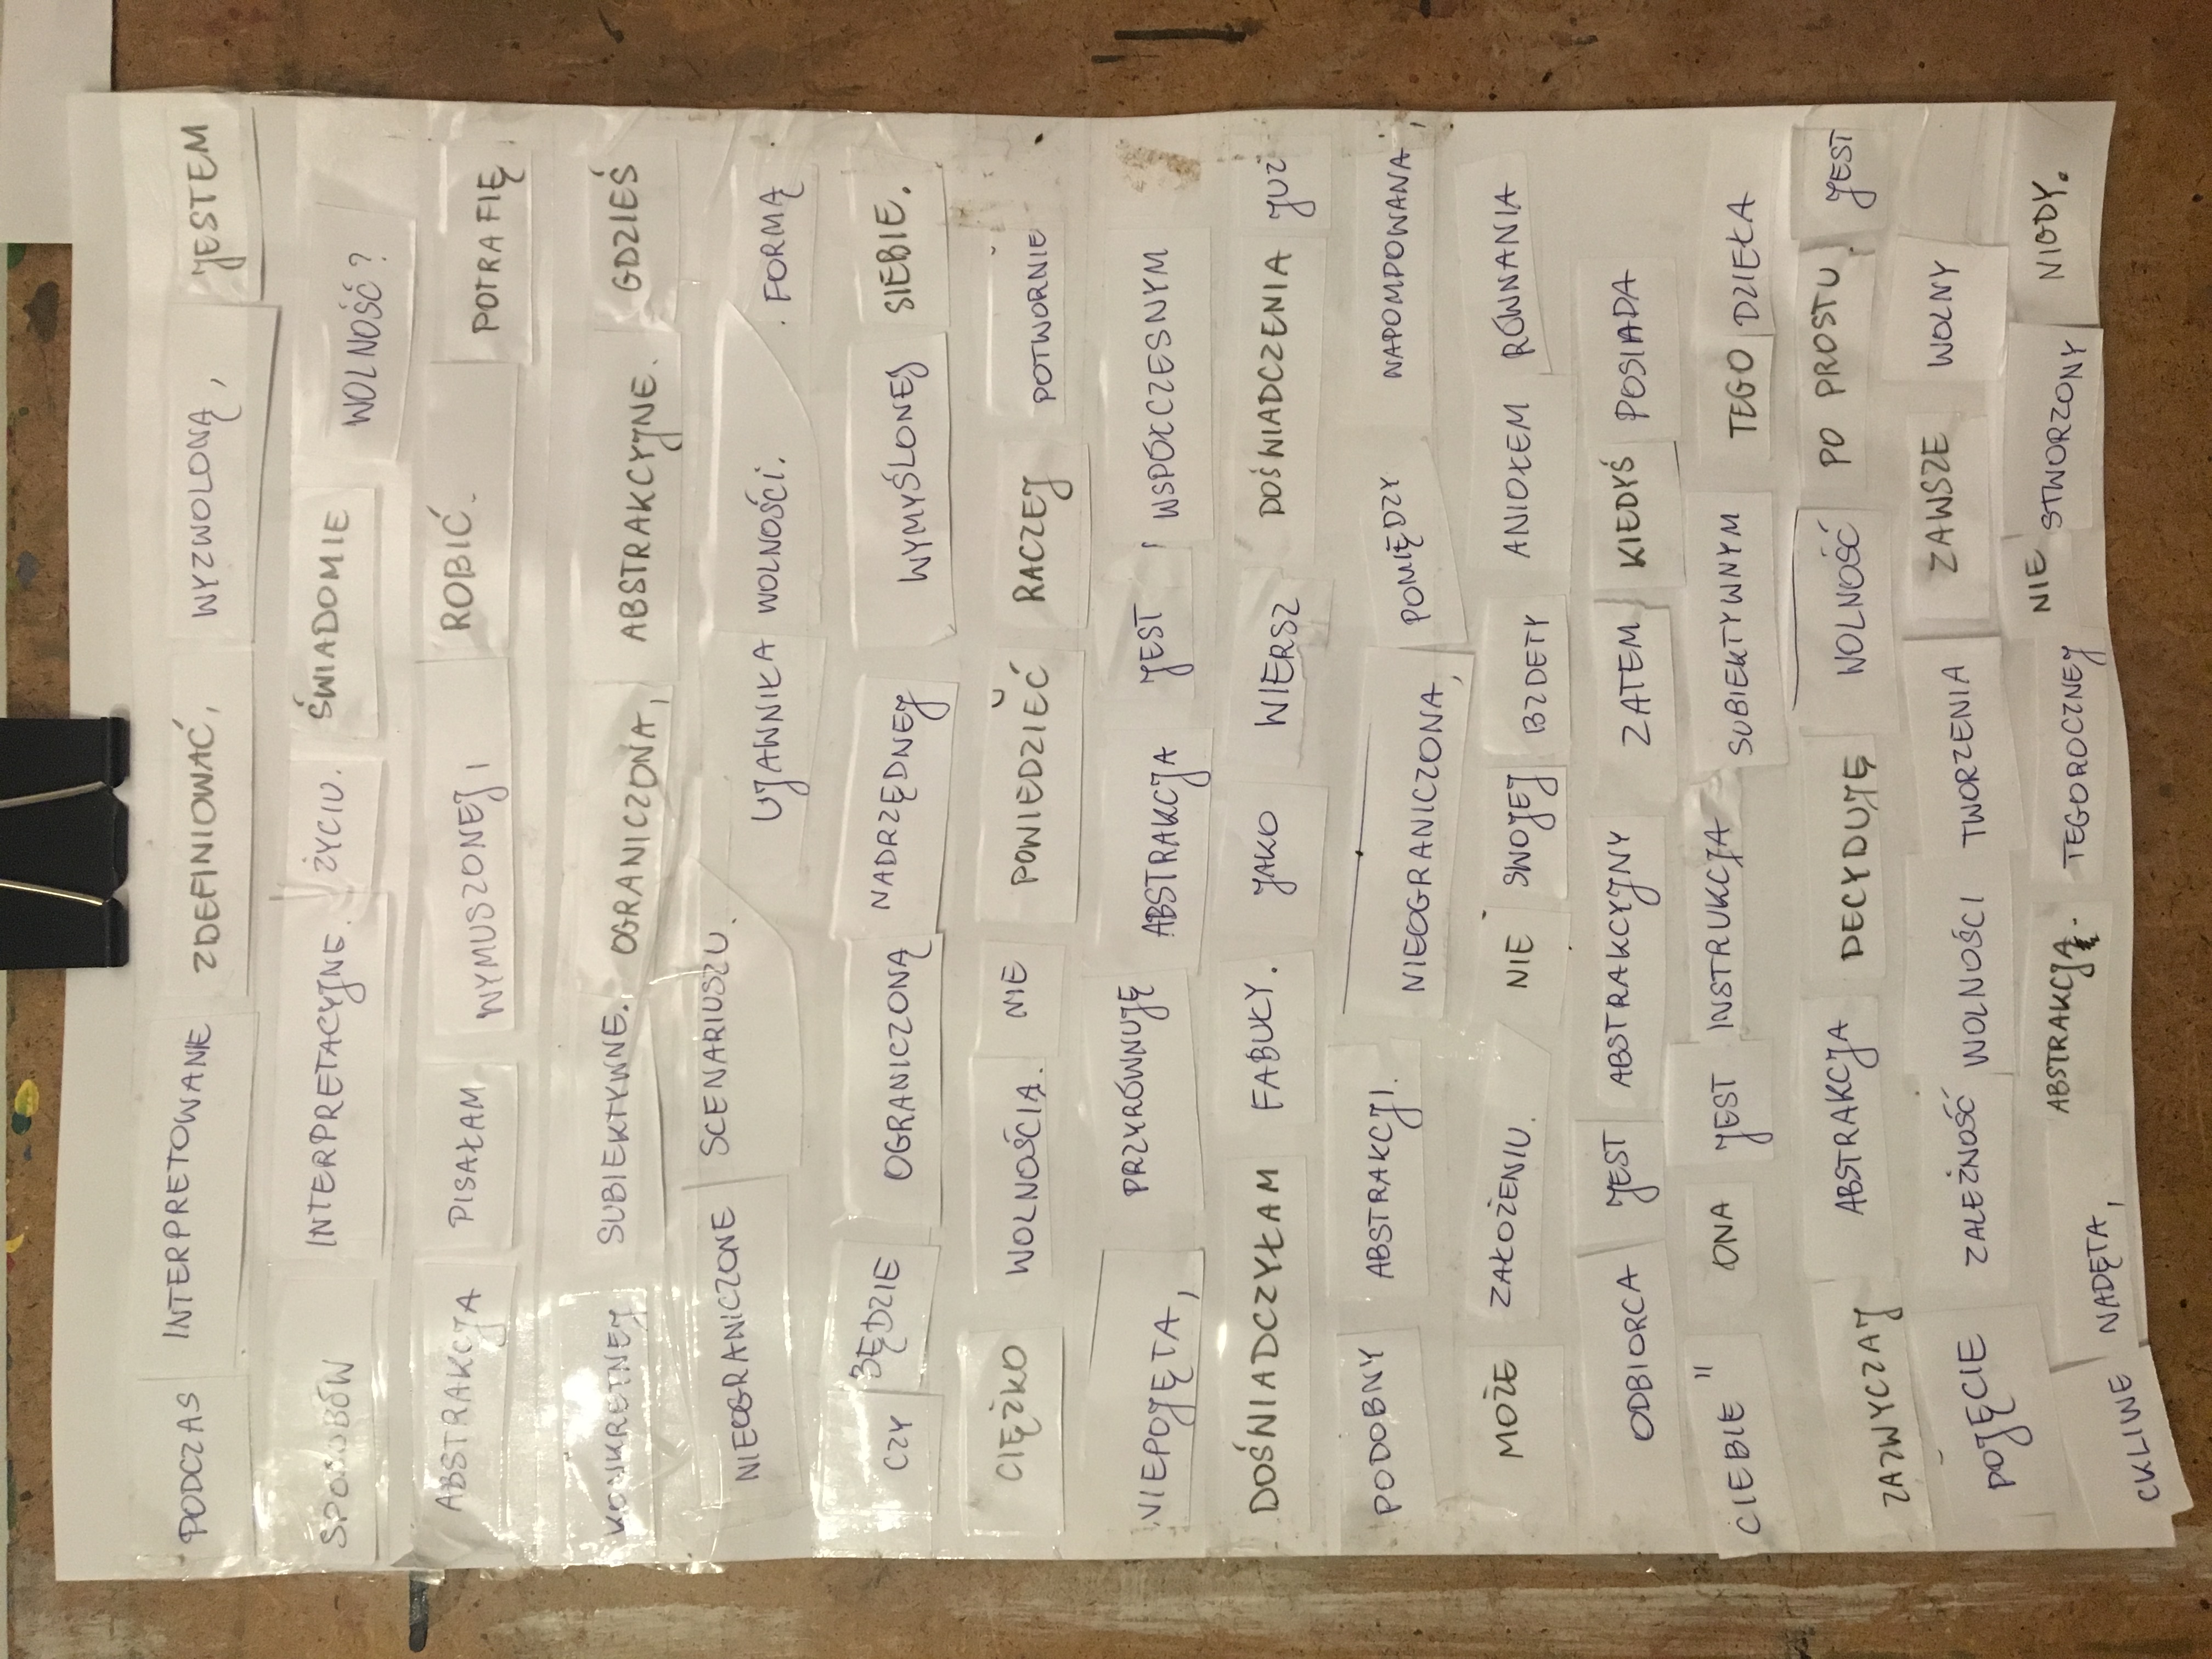 PODCZAS INTERPRETOWANIE ZDEFINIOWAĆ, WYZWOLONĄ, JESTEM
SPOSOBÓW INTERPRETACYJNE. ŻYCIU. ŚWIADOMIE WOLNOŚĆ?
ABSTRAKCJA PISAŁAM WYMUSZONEJ, ROBIĆ. POTRAFIĘ,
KONKRETNEJ SUBIEKTYWNE. OGRANICZONA, ABSTRAKCYJNE. GDZIEŚ
NIEOGRANICZONE SCENARIUSZU. UJAWNIŁA WOLNOŚCI. FORMĄ
CZY BĘDZIE OGRANICZONĄ NADRZĘDNEJ WYMYŚLONEJ SIEBIE.
CIĘŻKO WOLNOŚCIĄ. NIE POWIEDZIEĆ RACZEJ POTWORNIE
NIEPOJĘTA, PRZYRÓWNUJĘ ABSTRAKCJA JEST, WSPÓŁCZESNYM
DOŚWIADCZYŁAM FABUŁY. JAKO WIERSZ DOŚWIADCZENIA JUŻ
PODOBNY ABSTRAKCJI. NIEOGRANICZONA, POMIĘDZY NAPOMPOWANA,
MOŻE ZAŁOŻENIU. NIE SWOJEJ BZDETY ANIOŁEM RÓWNANIA
ODBIORCA JEST ABSTRAKCYJNY ZATEM KIEDYŚ POSIADA
CIEBIE" ONA JEST INSTRUKCJA SUBIEKTYWNYM TEGO DZIEŁA
ZAZWYCZAJ ABSTRAKCJA DECYDUJĘ WOLNOŚĆ PO PROSTU. JEST
POJĘCIE ZALEŻNOŚĆ WOLNOŚCI TWORZENIA ZAWSZE WOLNY
CKLIWE NADĘTA, ABSTRAKCJĄ. TEGOROCZNEJ NIE STWORZONY NIGDY.